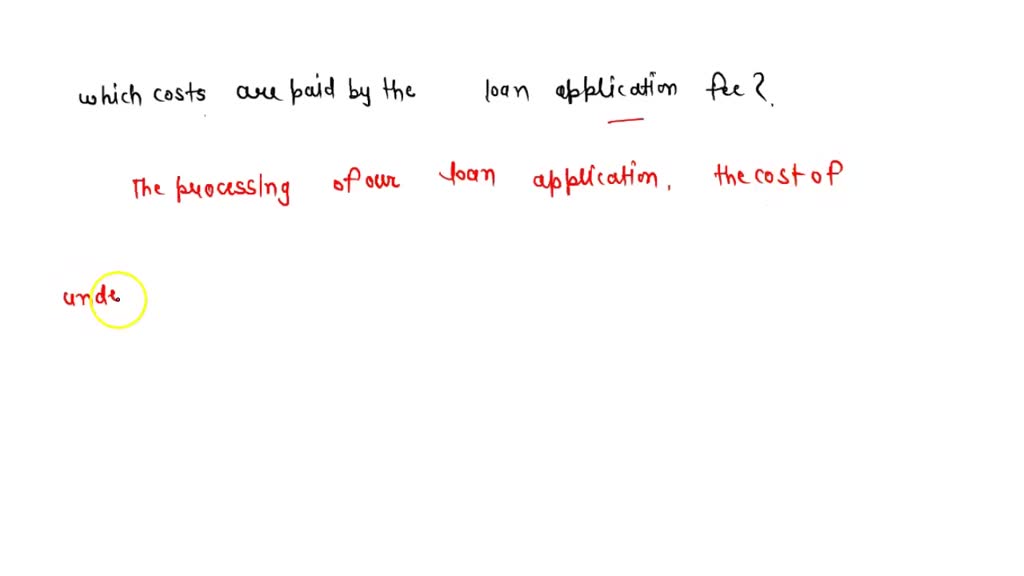 which costs are paid by the loan application fee?
The processing of our loan application, the cost of
unde